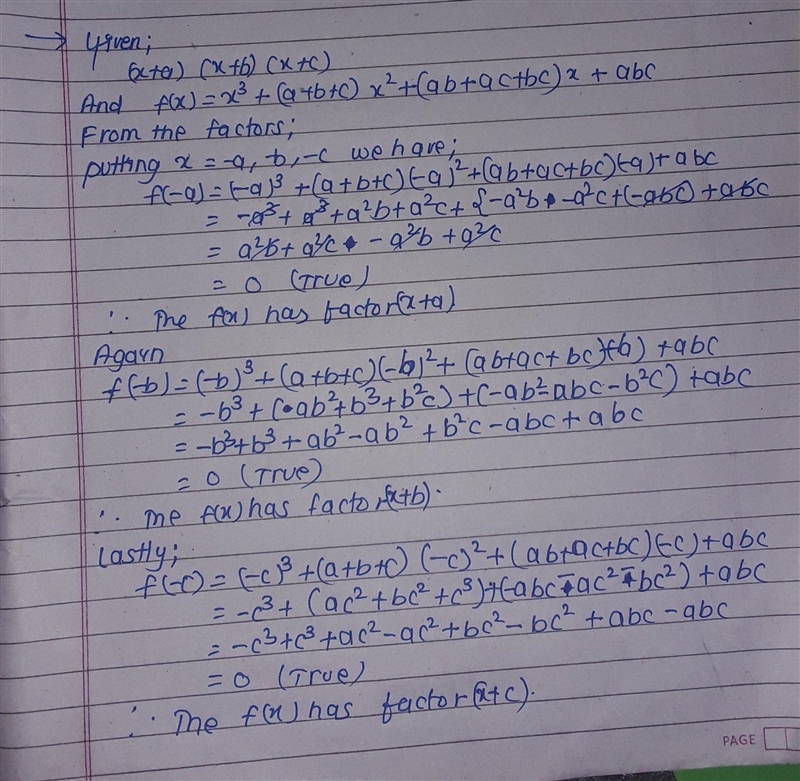 → Given;
(x+a) (x+b) (x+c)
And f(x) = x³ + (a+b+c) x² + (ab+ac+bc)x + abc
From the factors;
putting x = -a, -b, -c we have;
f(-a) = (-a)³ + (a+b+c)(-a)² + (ab+ac+bc)(-a) + abc
= -a³ + a³ + a²b + a²c + {-a²b - a²c + (-abc) + abc
= a²b + a²c - a²b + a²c
= 0 (True)
∴ The f(x) has factor (x+a)
Again
f(-b) = (-b)³ + (a+b+c)(-b)² + (ab+ac+bc)(-b) + abc
= -b³ + (ab²+b³+b²c) + (-ab²-abc-b²c) + abc
= -b³+b³+ab²-ab²+b²c-abc+abc
= 0 (True)
∴ The f(x) has factor (x+b).
Lastly;
f(-c) = (-c)³ + (a+b+c) (-c)² + (ab+ac+bc)(-c) + abc
= -c³ + (ac²+bc²+c³) + (-abc-ac²-bc²) + abc
= -c³+c³+ac²-ac²+bc²-bc²+abc-abc
= 0 (True)
∴ The f(x) has factor (x+c).
PAGE